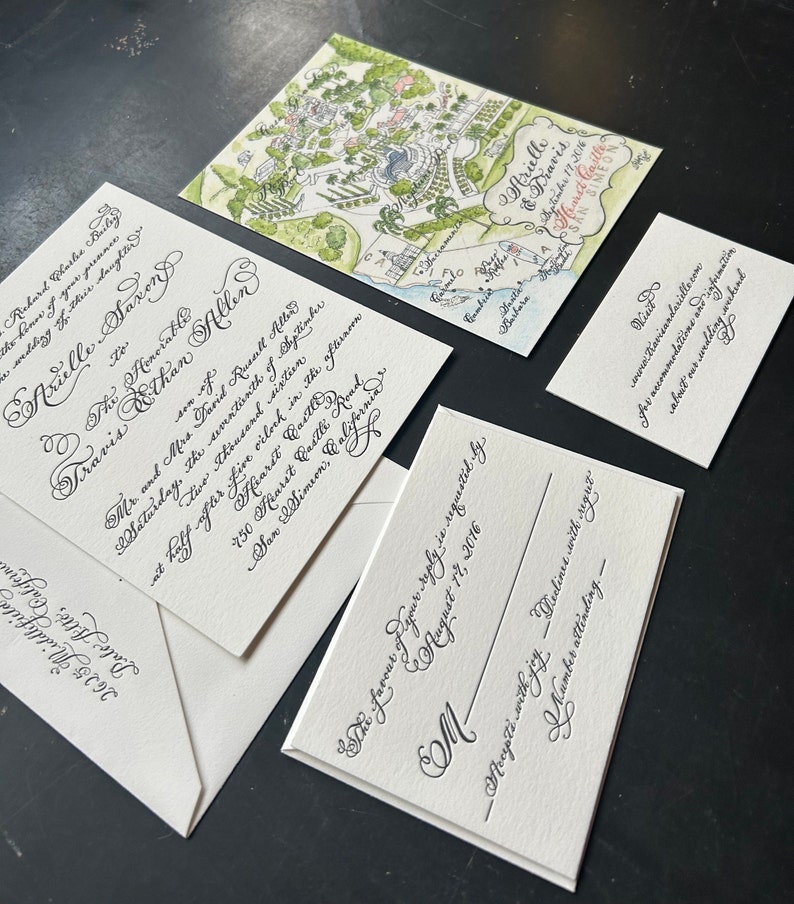 Richard Charles Bailey
the honor of your presence
the wedding of their daughter
Arielle Saxon
to
The Honorable
Travis Ethan Allen
son of
Mr. and Mrs. David Russell Allen
Saturday, the seventeenth of September
two thousand sixteen
at half after five o'clock in the afternoon
Hearst Castle
750 Hearst Castle Road
San Simeon, California
2625 Middlefield
Palo Alto, California
Arielle
& Travis
September 17, 2016
Hearst Castle
SAN SIMEON
Neptune Pool
Roman Pool
CALIFORNIA
Sacramento
Carmel
Cambria
Paso
Robles
Santa
Barbara
Visit
www.travisandarielle.com
for accommodations and information
about our wedding weekend
The favour of your reply is requested by
August 17, 2016
M
Accepts with joy Declines with regret
Number attending